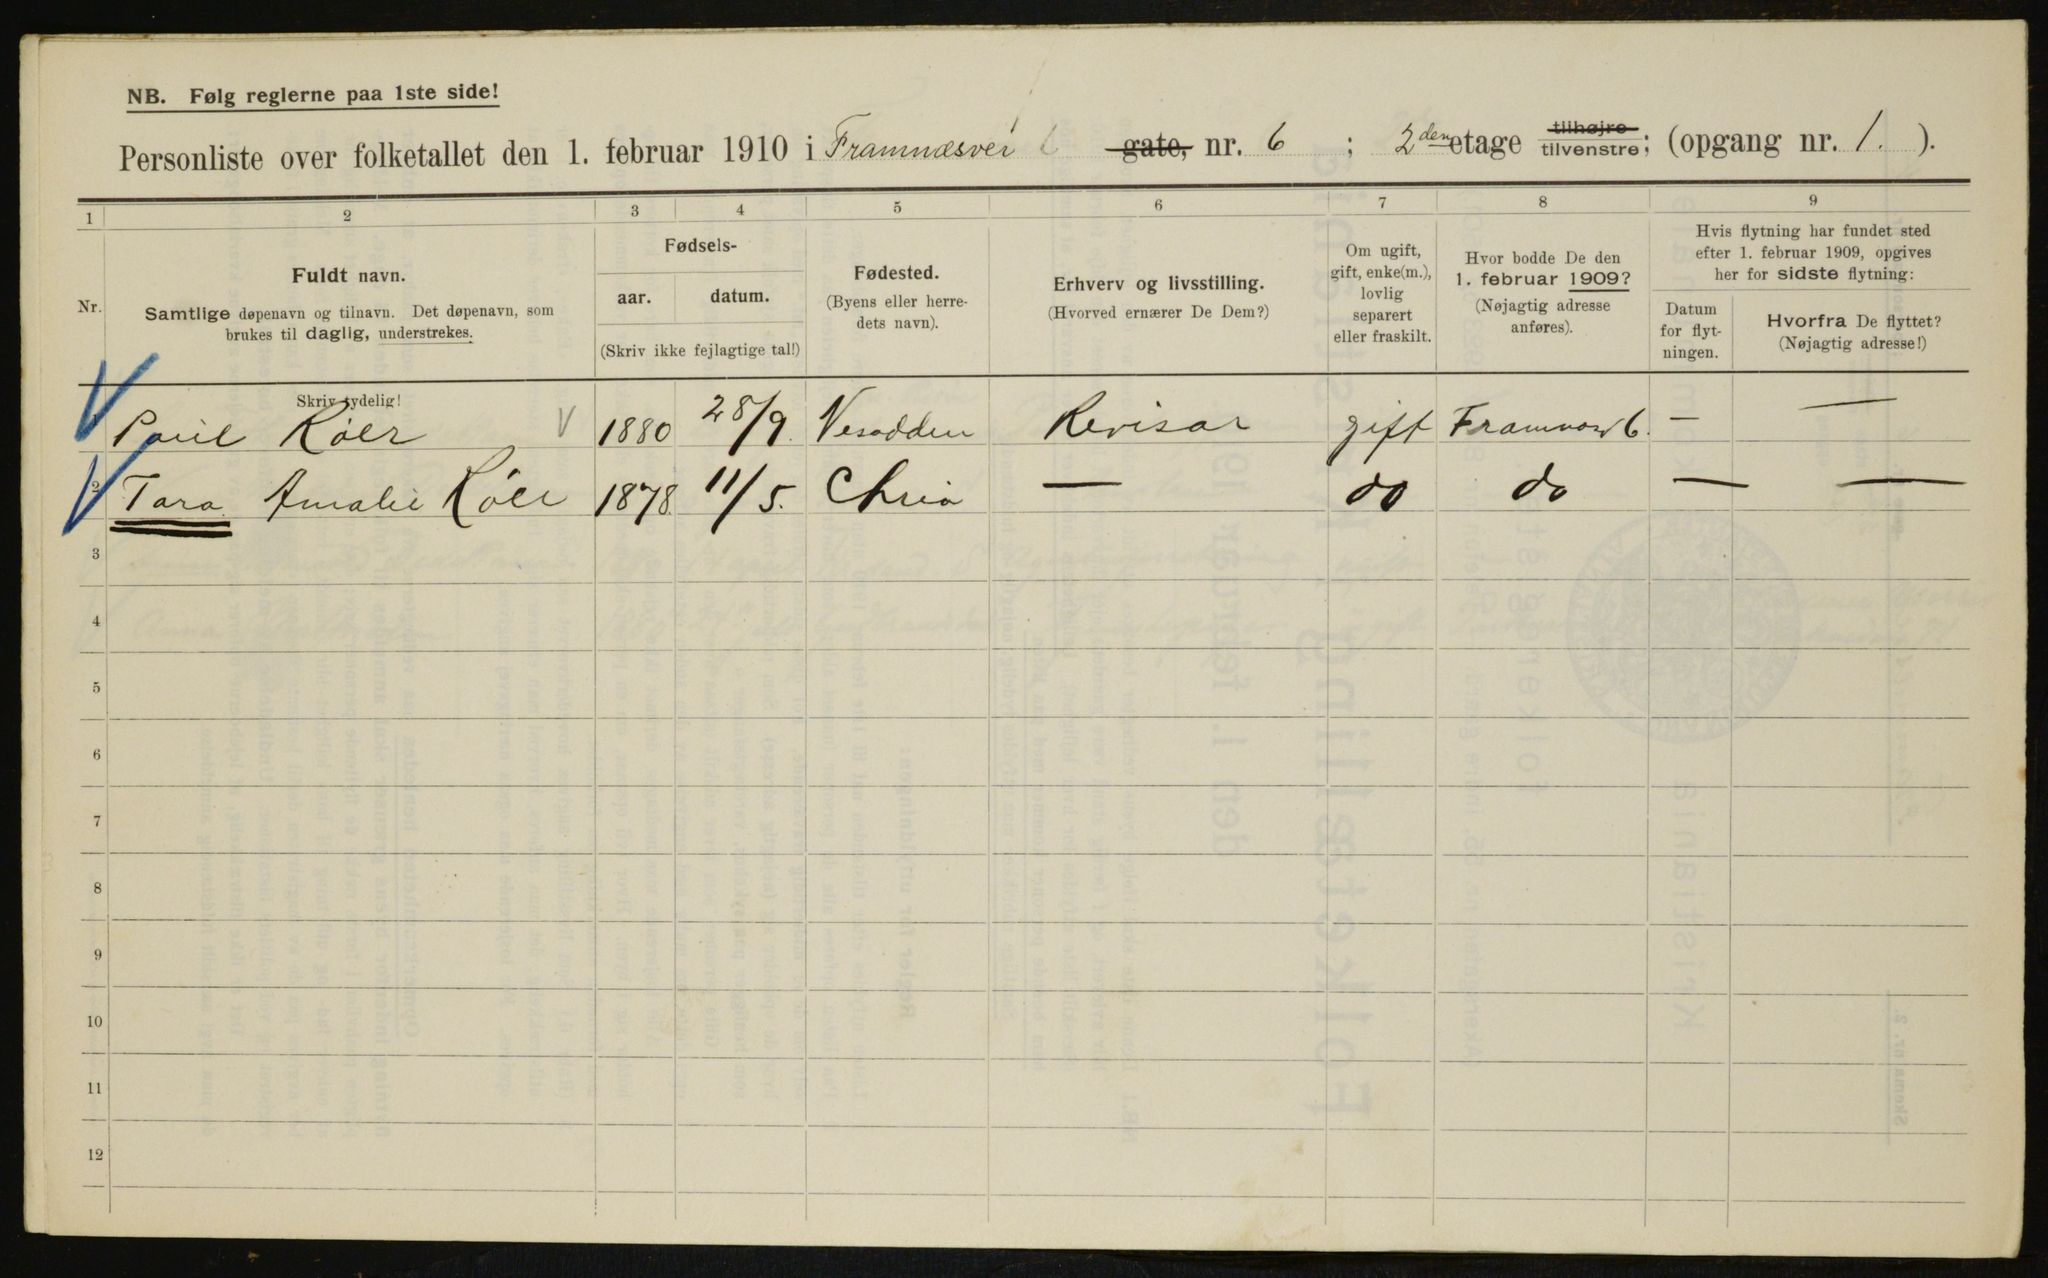 NB. Følg reglerne paa 1ste side!
Personliste over folketallet den 1. februar 1910 i Framnæsvei gate, nr. 6 ; 2den etage tilhøjre tilvenstre; (opgang nr. 1. ).
1 2 3 4 5 6 7 8 9
Nr.
Fuldt navn.
Samtlige døpenavn og tilnavn. Det døpenavn, som
brukes til daglig, understrekes.
Skriv tydelig!
Fødsels-
aar. datum.
(Skriv ikke fejlagtige tal!)
Fødested.
(Byens eller herre-
dets navn).
Erhverv og livsstilling.
(Hvorved ernærer De Dem?)
Om ugift,
gift, enke(m.),
lovlig
separert
eller fraskilt.
Hvor bodde De den
1. februar 1909?
(Nøjagtig adresse
anføres).
Hvis flytning har fundet sted
efter 1. februar 1909, opgives
her for sidste flytning:
Datum
for flyt-
ningen.
Hvorfra De flyttet?
(Nøjagtig adresse!)
1 Paul Röer 1880 28/9. Nesodden Revisor gift 6. — —
2 Tara Amalie Röer 1878. 11/5. Chria — do do — —
3
4
5
6
7
8
9
10
11
12